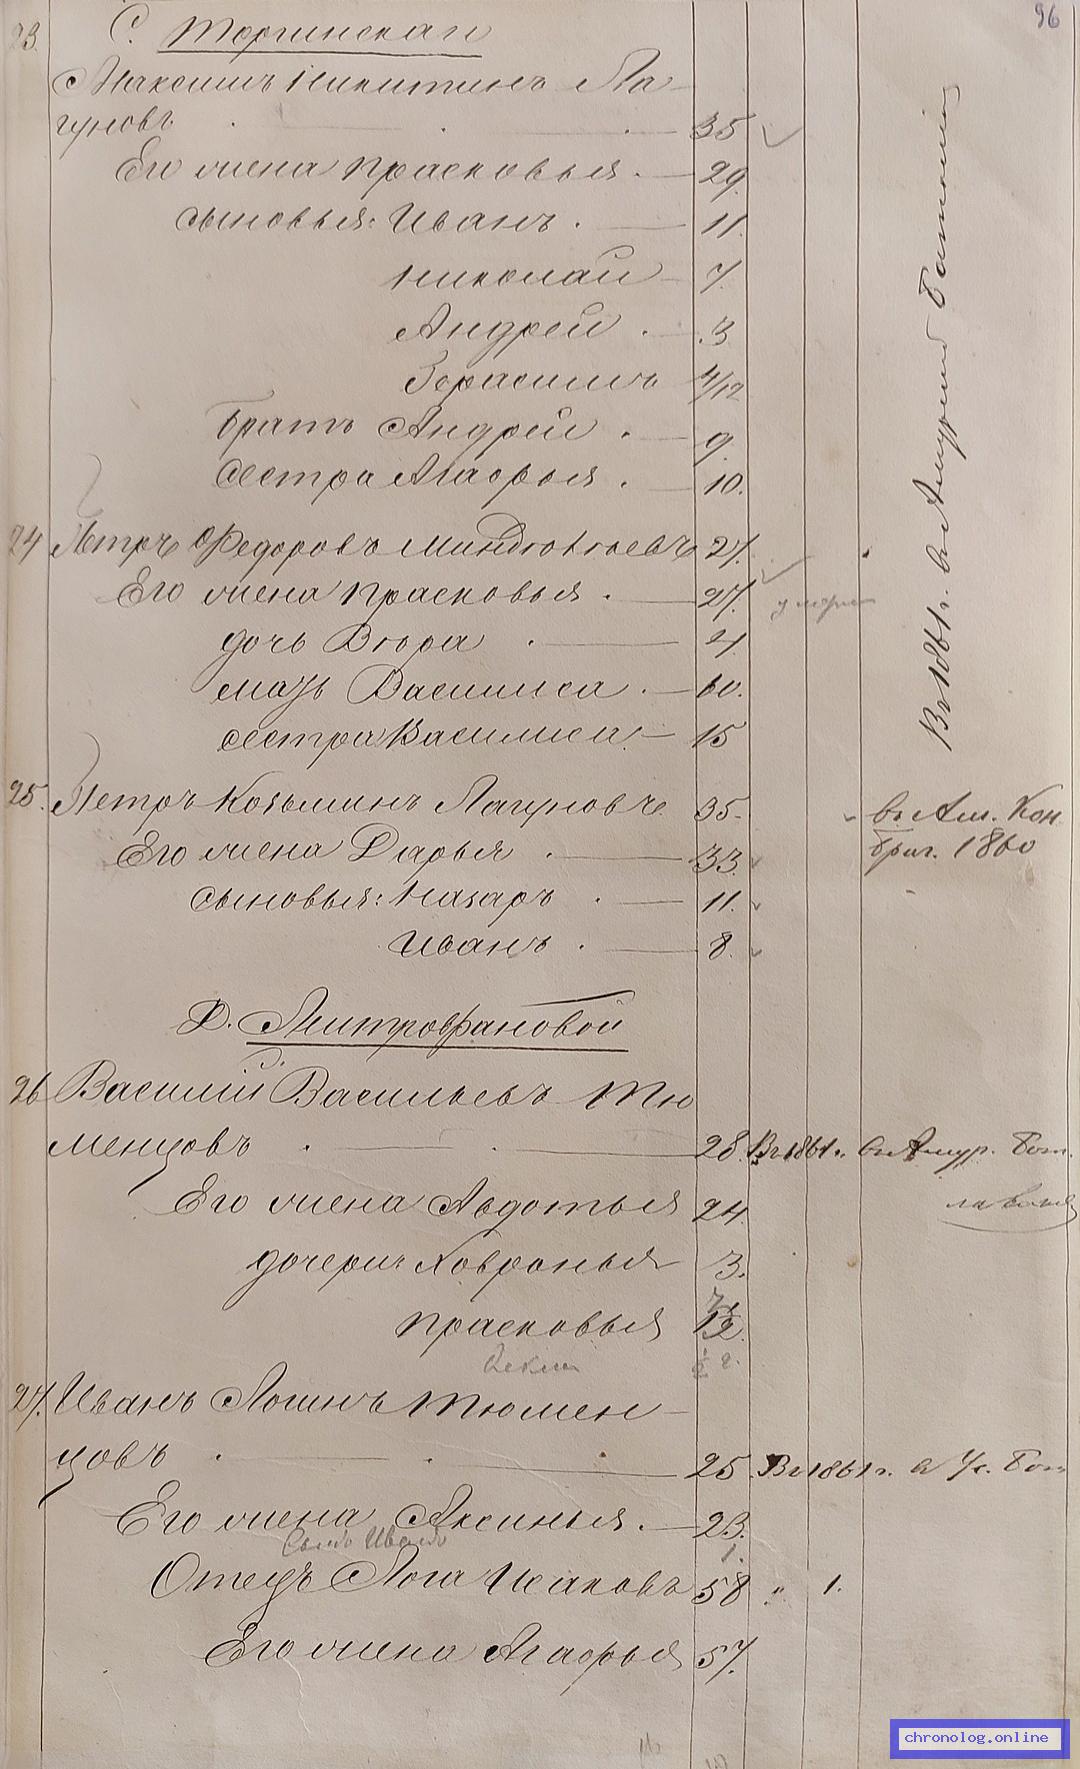 96
23. С. Торгинская
Максимъ Никитинъ Ла-
гуновъ 35
Его жена Прасковья 29
сыновья: Иванъ 11.
Николай 7
Андрей 3
Герасимъ 4/12
Братъ Андрей 9
Сестра Агафья 10.
24 Петръ Федоровъ 27.
Его жена Прасковья 27.
дочь Вѣра 4
мать Василиса 60.
сестра Василиса 15
Въ 1861 г. въ Амурский баталион
25. Петръ Козьминъ Лагуновъ 35. въ Ам. Кон.
Его жена Дарья 33 бриг. 1860
сыновья: Назаръ 11.
Иванъ 8.
Д. Митрофановой
26 Василий Васильевъ Тю
менцовъ 28. Въ 1861 г. въ Амур. бат.
Его жена Авдотья 24
дочери Ховронья 3.
Прасковья 1/2
Фекла ½ г.
27. Иванъ Логинъ Тюмен-
цовъ 25 Въ 1861 г. бат
Его жена Аксинья. 23.
Сынъ Иванъ 1.
Отецъ Лога Исаковъ 58 " 1.
Его жена Агафья 57.
chronolog.online